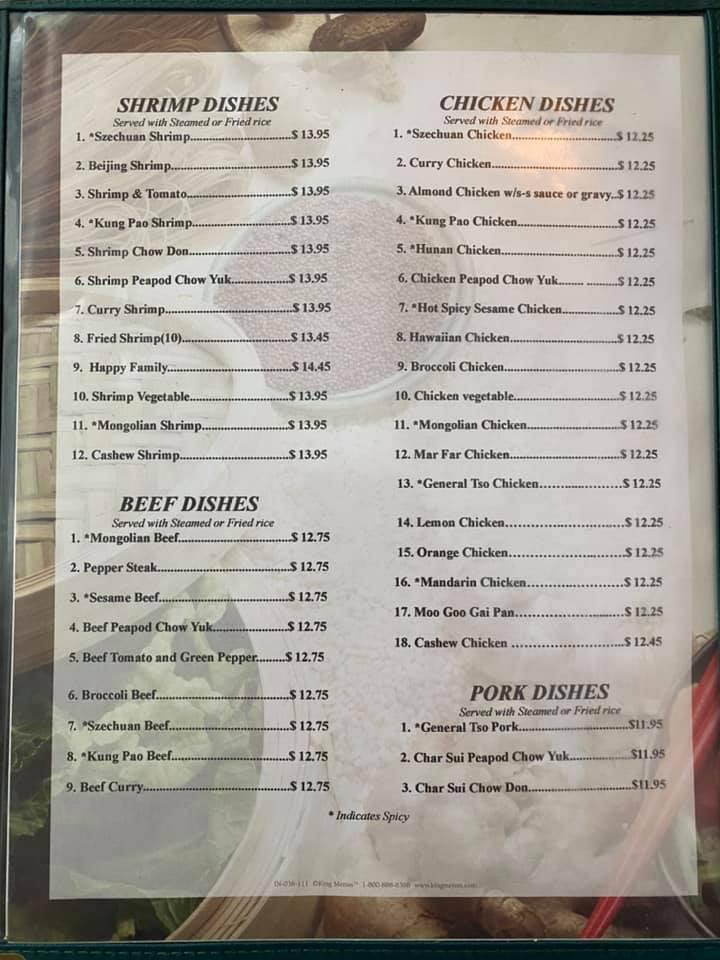 SHRIMP DISHES
Served with Steamed or Fried rice
1. *Szechuan Shrimp..............................$ 13.95
2. Beijing Shrimp....................................$ 13.95
3. Shrimp & Tomato...............................$ 13.95
4. *Kung Pao Shrimp.............................$ 13.95
5. Shrimp Chow Don..............................$ 13.95
6. Shrimp Peapod Chow Yuk.................$ 13.95
7. Curry Shrimp......................................$ 13.95
8. Fried Shrimp(10).................................$ 13.45
9. Happy Family.....................................$ 14.45
10. Shrimp Vegetable.............................$ 13.95
11. *Mongolian Shrimp..........................$ 13.95
12. Cashew Shrimp................................$ 13.95
BEEF DISHES
Served with Steamed or Fried rice
1. *Mongolian Beef.................................$ 12.75
2. Pepper Steak.......................................$ 12.75
3. *Sesame Beef.......................................$ 12.75
4. Beef Peapod Chow Yuk......................$ 12.75
5. Beef Tomato and Green Pepper.........$ 12.75
6. Broccoli Beef.......................................$ 12.75
7. *Szechuan Beef...................................$ 12.75
8. *Kung Pao Beef...................................$ 12.75
9. Beef Curry...........................................$ 12.75
CHICKEN DISHES
Served with Steamed or Fried rice
1. *Szechuan Chicken...............................$ 12.25
2. Curry Chicken......................................$ 12.25
3. Almond Chicken w/s-s sauce or gravy..$ 12.25
4. *Kung Pao Chicken..............................$ 12.25
5. *Hunan Chicken...................................$ 12.25
6. Chicken Peapod Chow Yuk....... .........$ 12.25
7. *Hot Spicy Sesame Chicken................$ 12.25
8. Hawaiian Chicken................................$ 12.25
9. Broccoli Chicken..................................$ 12.25
10. Chicken vegetable...............................$ 12.25
11. *Mongolian Chicken............................$ 12.25
12. Mar Far Chicken.................................$ 12.25
13. *General Tso Chicken.........................$ 12.25
14. Lemon Chicken...................................$ 12.25
15. Orange Chicken..................................$ 12.25
16. *Mandarin Chicken.............................$ 12.25
17. Moo Goo Gai Pan................................$ 12.25
18. Cashew Chicken .................................$ 12.45
PORK DISHES
Served with Steamed or Fried rice
1. *General Tso Pork.................................$11.95
2. Char Sui Peapod Chow Yuk..................$11.95
3. Char Sui Chow Don...............................$11.95
* Indicates Spicy
©King Menus™ 1-800-888-8398 www.kingmenus.com